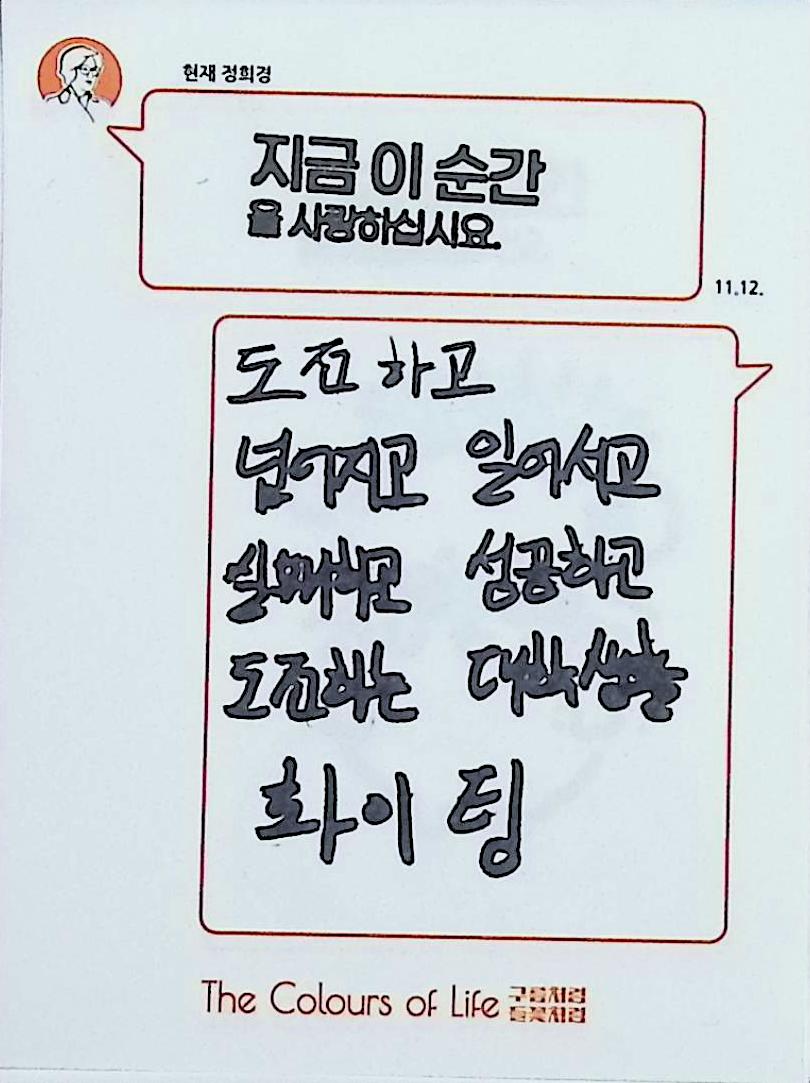 현재 정희경
지금 이 순간
을 사랑하십시요.
11.12.
도전하고
넘어지고 일어서고
실패하고 성공하고
도전하는 대학생활
화이팅
The Colours of Life 구름처럼
들꽃처럼